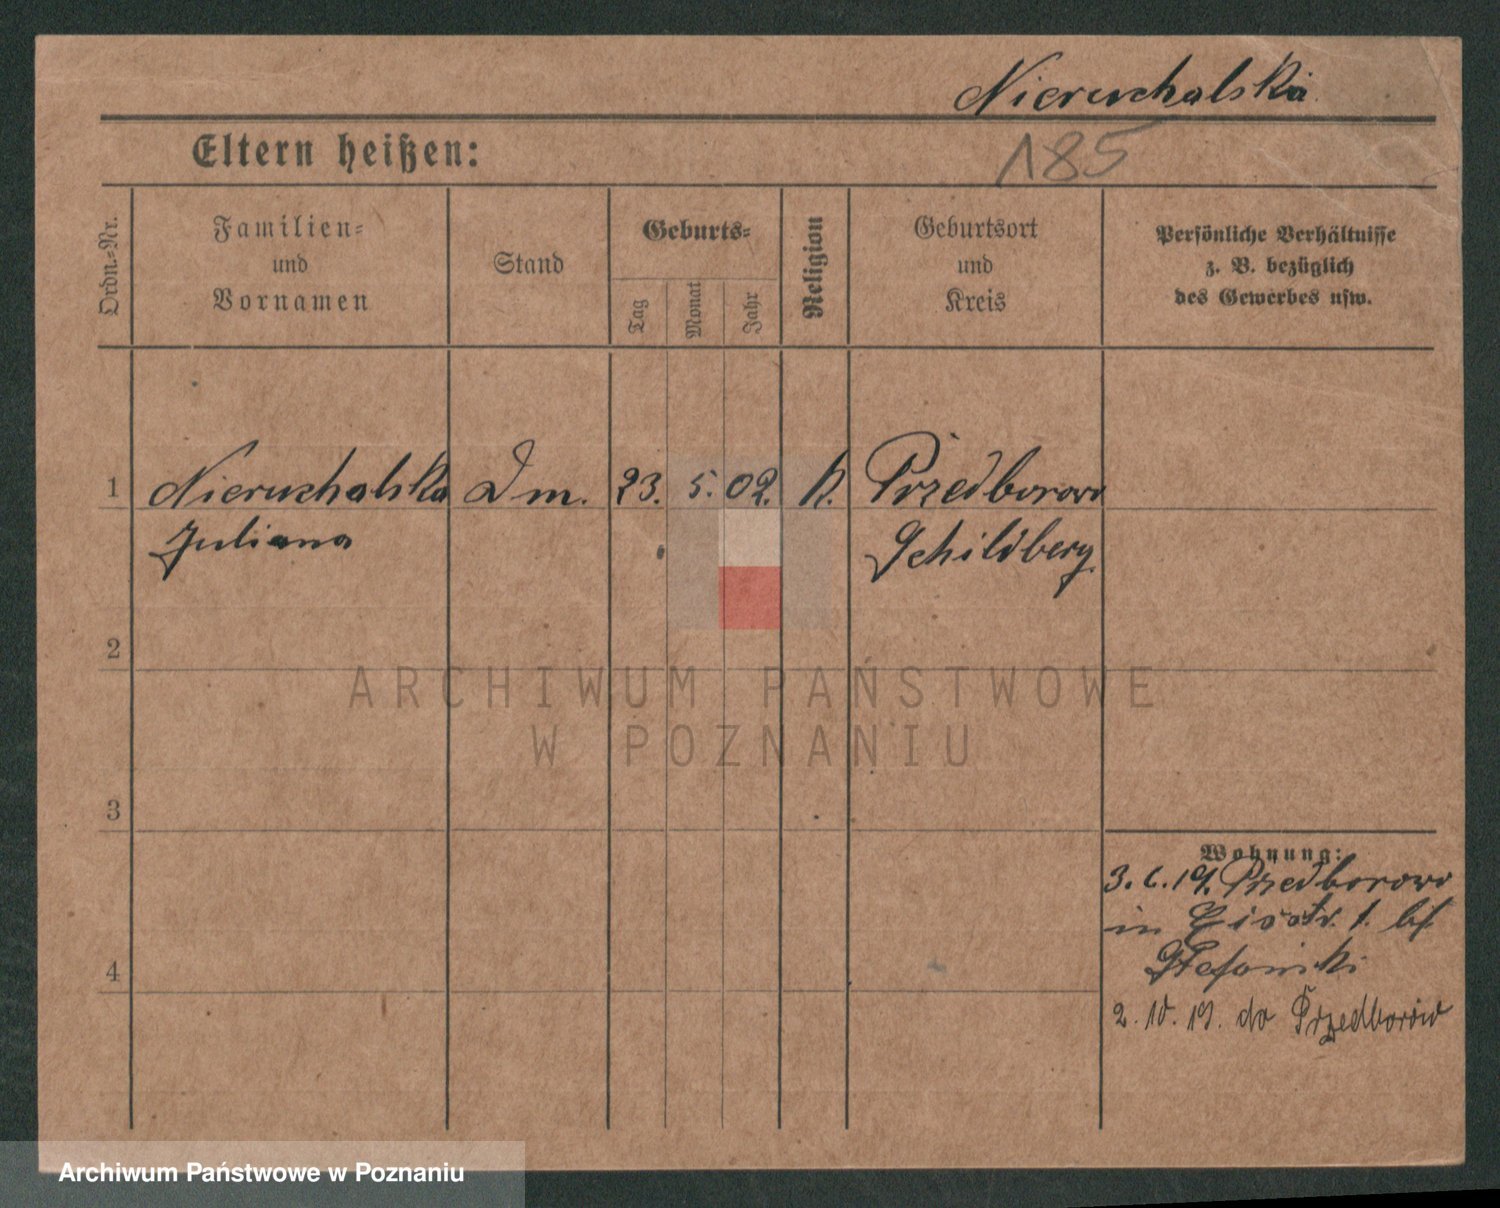 Nieruchalska
185
Eltern heißen:
Ordn.-Nr.
Familien-
und
Vornamen
Stand
Geburts-
Tag
Monat
Jahr
Religion
Geburtsort
und
Kreis
Persönliche Verhältnisse
z. B. bezüglich
des Gewerbes usw.
1 Nieruchalska Dm. 23. 5. 02. k. Przedborowo
Juliana Schildberg.
2
ARCHIWUM PAŃSTWOWE
W POZNANIU
3
Wohnung:
3. 6. 19. Przedborowo
in 1. bf
Stefanski
4
2. 10. 19. do Przedborów
Archiwum Państwowe w Poznaniu